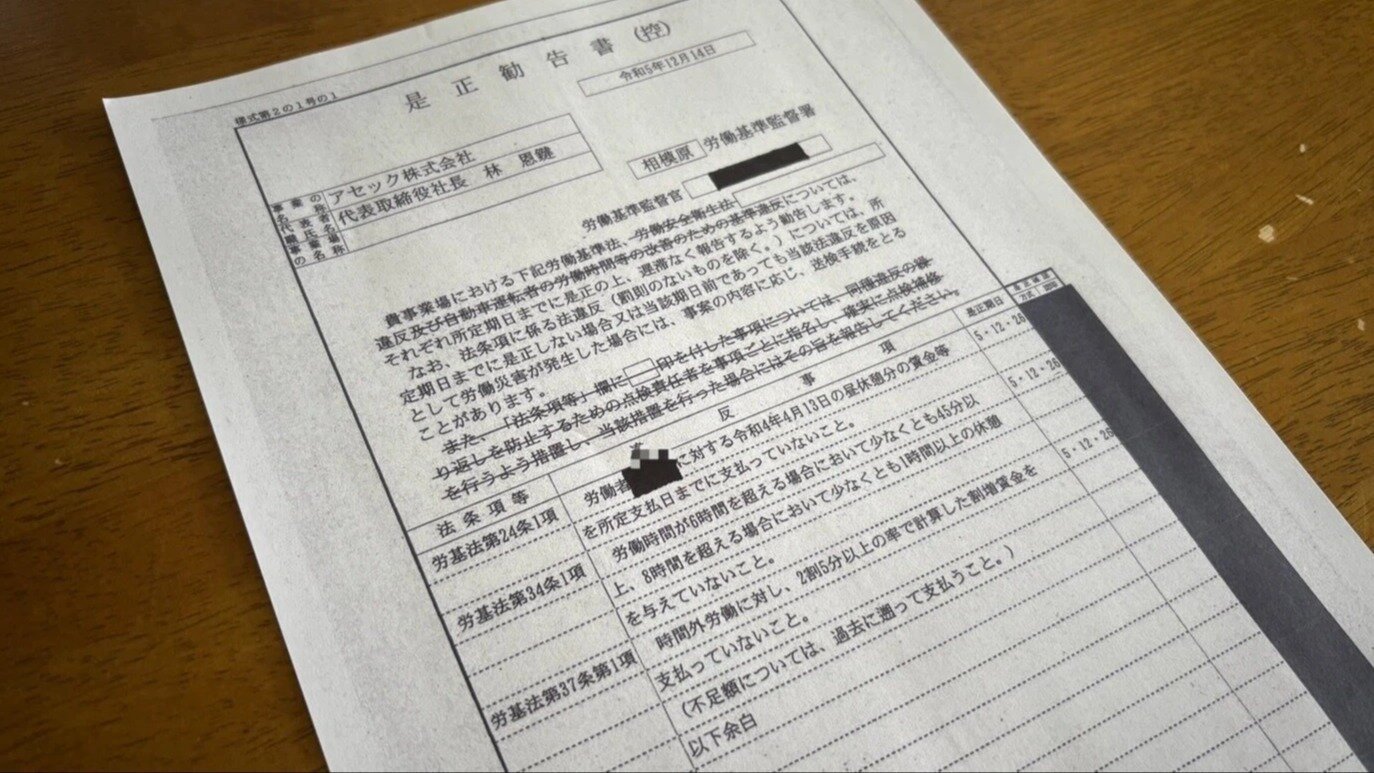 様式第2の1号の1
是正勧告書(控)
令和5年12月14日
アセック株式会社
代表取締役社長 林 恩鏈
相模原 労働基準監督署
労働基準監督官
事業の名称
代表者職氏名
事業場の名称
貴事業場における下記労働基準法、労働安全衛生法
違反及び自動車運転者の労働時間等の改善のための基準違反については、
それぞれ所定期日までに是正の上、遅滞なく報告するよう勧告します。
なお、法条項に係る法違反(罰則のないものを除く。)については、所
定期日までに是正しない場合又は当該期日前であっても当該法違反を原因
として労働災害が発生した場合には、事案の内容に応じ、送検手続をとる
ことがあります。
また、「法条項等」欄に□印を付した事項については、同種違反の繰
り返しを防止するための点検責任者を事項ごとに指名し、確実に点検補修
を行うよう措置し、当該措置を行った場合にはその旨を報告してください。
法条項等 違反事項 是正期日
労基法第24条1項 労働者 に対する令和4年4月13日の昼休憩分の賃金等 5・12・28
を所定支払日までに支払っていないこと。
労基法第34条1項 労働時間が6時間を超える場合において少なくとも45分以 5・12・28
上、8時間を超える場合において少なくとも1時間以上の休憩
を与えていないこと。
労基法第37条第1項 時間外労働に対し、2割5分以上の率で計算した割増賃金を 5・12・28
支払っていないこと。
(不足額については、過去に遡って支払うこと。)
以下余白